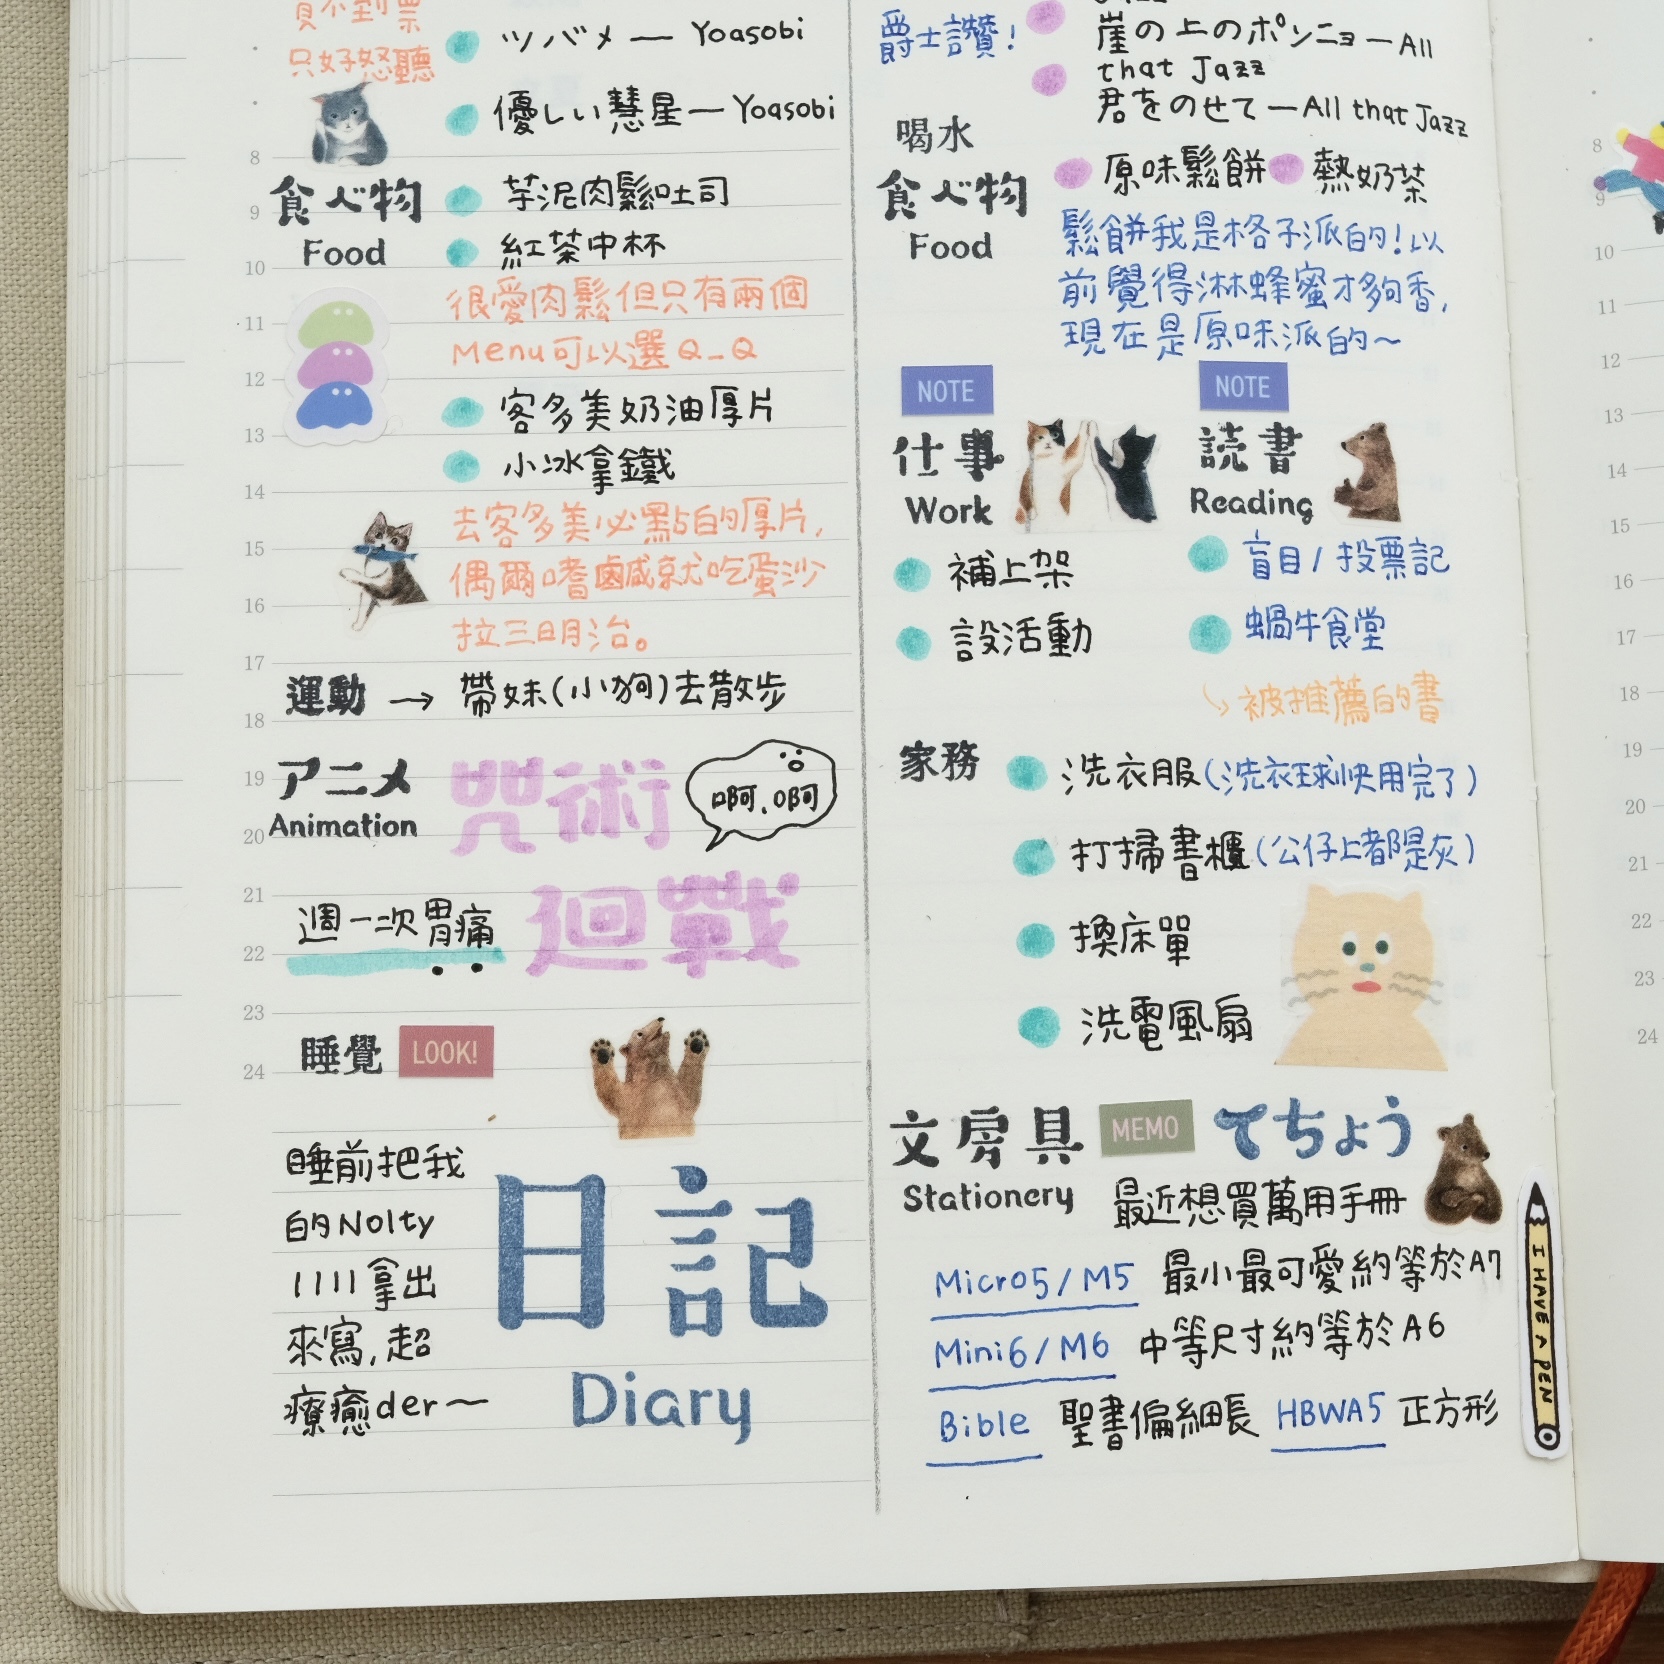 買不到票
只好怒聽
ツバメ — Yoasobi
優しい彗星 — Yoasobi
8
食べ物
Food
9
10
芋泥肉鬆吐司
紅茶中杯
很愛肉鬆但只有兩個
Menu可以選Q_Q
11
12
13
客多美奶油厚片
小冰拿鐵
14
去客多美必點的厚片,
偶爾嗜鹹就吃蛋沙
拉三明治。
15
16
17
運動 → 帶妹(小狗)去散步
18
アニメ
Animation
19
20
咒術
迴戰
啊.啊
21
週一次胃痛
22
23
睡覺 LOOK!
24
睡前把我
的Nolty
1111拿出
來寫,超
療癒der～
日記
Diary
爵士讚!
崖の上のポンニョ — All
that Jazz
君をのせて — All that Jazz
喝水
食べ物
Food
原味鬆餅 熱奶茶
鬆餅我是格子派的!以
前覺得淋蜂蜜才夠香,
現在是原味派的～
NOTE
仕事
Work
補上架
設活動
NOTE
読書
Reading
盲目/投票記
蝸牛食堂
被推薦的書
家務
洗衣服(洗衣球快用完了)
打掃書櫃(公仔上都是灰)
換床單
洗電風扇
文房具
Stationery
MEMO
てちょう
最近想買萬用手冊
Micro5/M5 最小最可愛約等於A7
Mini6/M6 中等尺寸約等於A6
Bible 聖書偏細長 HBWA5 正方形
I HAVE A PEN
8
9
10
11
12
13
14
15
16
17
18
19
20
21
22
23
24